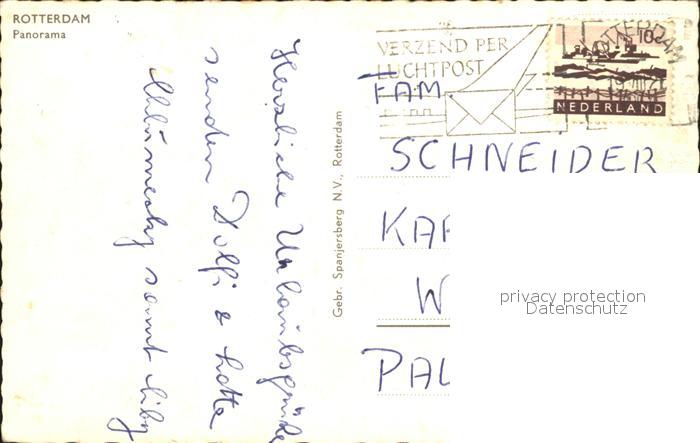 ROTTERDAM
Panorama
Herzliche Urlaubsgrüße
senden Dolfi & Lotte
samt
Gebr. Spanjersberg N.V., Rotterdam
VERZEND PER
LUCHTPOST
ROTTERDAM
NEDERLAND
FAM.
SCHNEIDER
KAR
W
PAL
privacy protection
Datenschutz